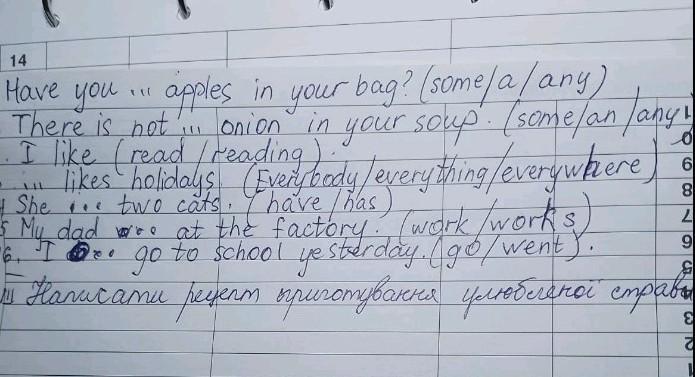 14
Have you ... apples in your bag? (some/a/any)
There is not ... onion in your soup. (some/an/any
. I like (read/reading).
... likes holidays (Everybody/everything/everywhere)
4 She ... two cats. (have/has)
5 My dad ... at the factory. (work/works)
6. I ... go to school yesterday. (go/went).
III Написати рецепт приготування улюбленої страви
9
8
7
6
5
3
2
1